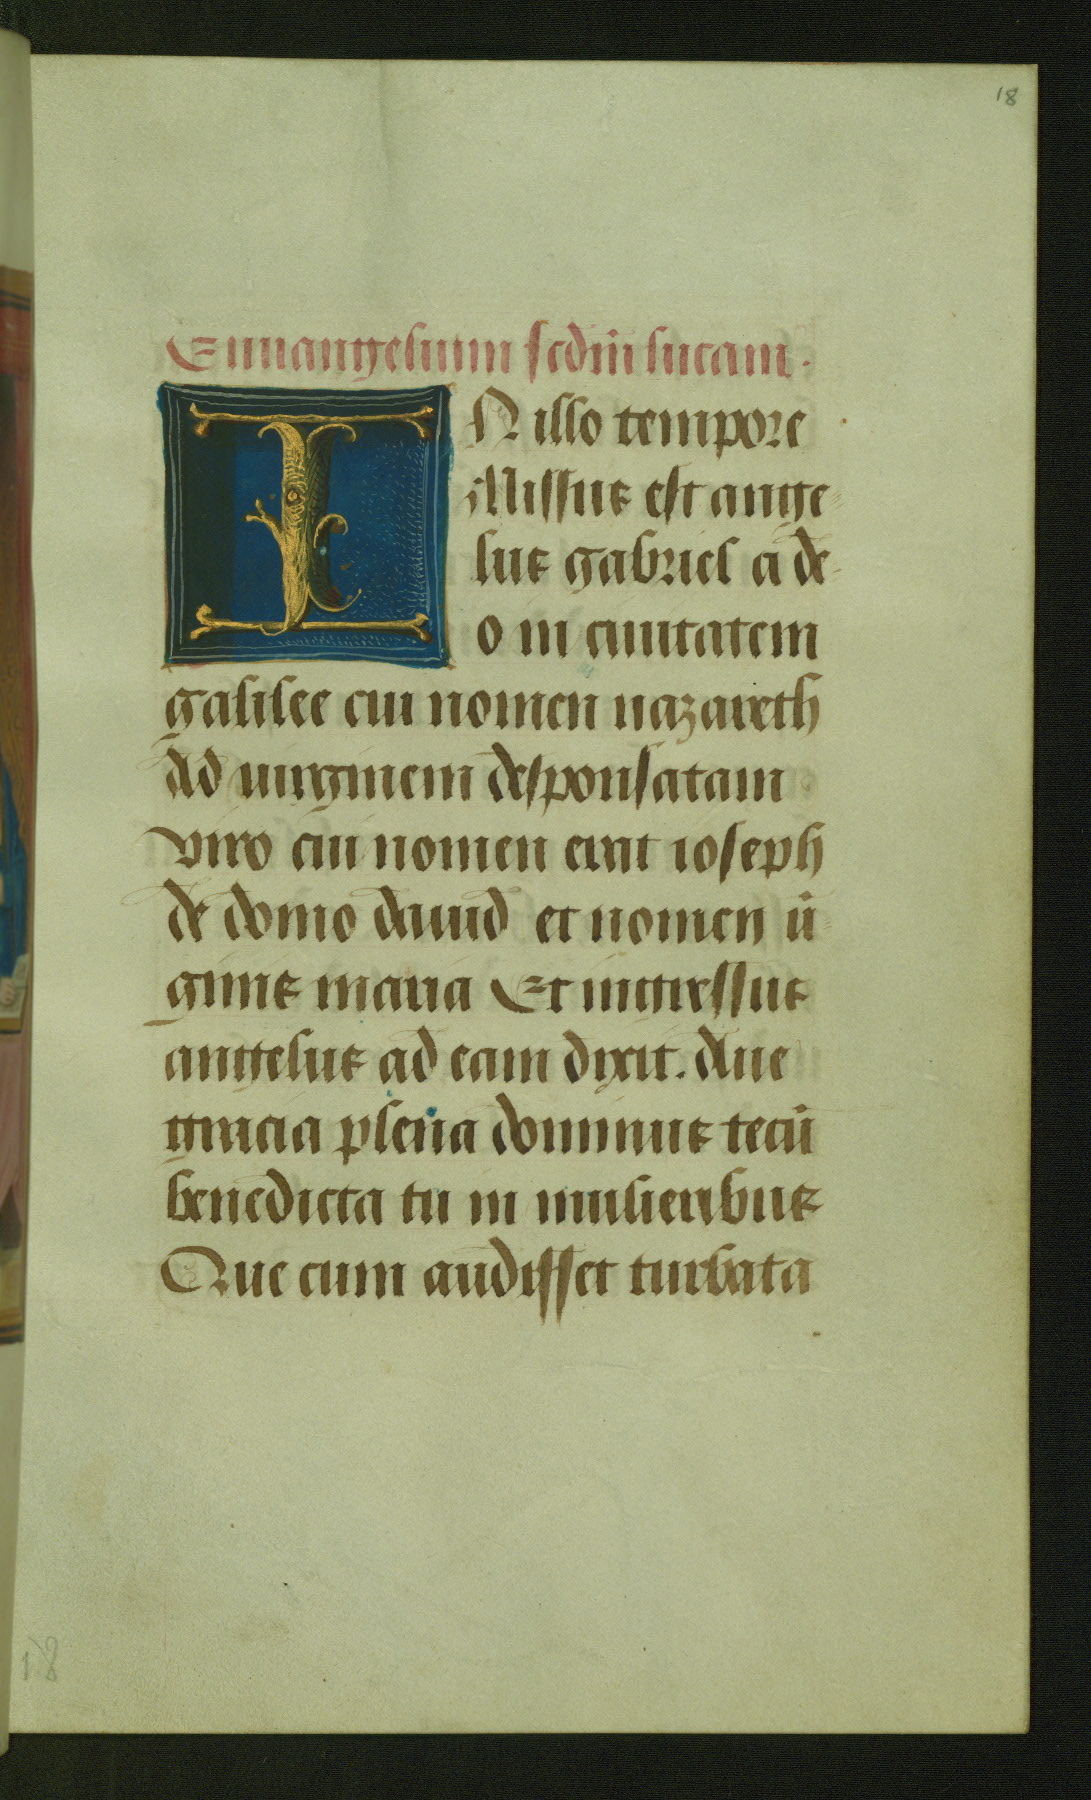 18
Euuangelium scdm̄ lucam.
IN illo tempore
Missus est ange
lus gabriel a de
o in ciuitatem
galilee cui nomen nazareth
Ad uirginem desponsatam
viro cui nomen erat ioseph
de domo dauid et nomen ūi
ginis maria Et ingressus
angelus ad eam dixit. Aue
gracia plena dominus tecū
benedicta tu in mulieribus
Que cum audisset turbata
18